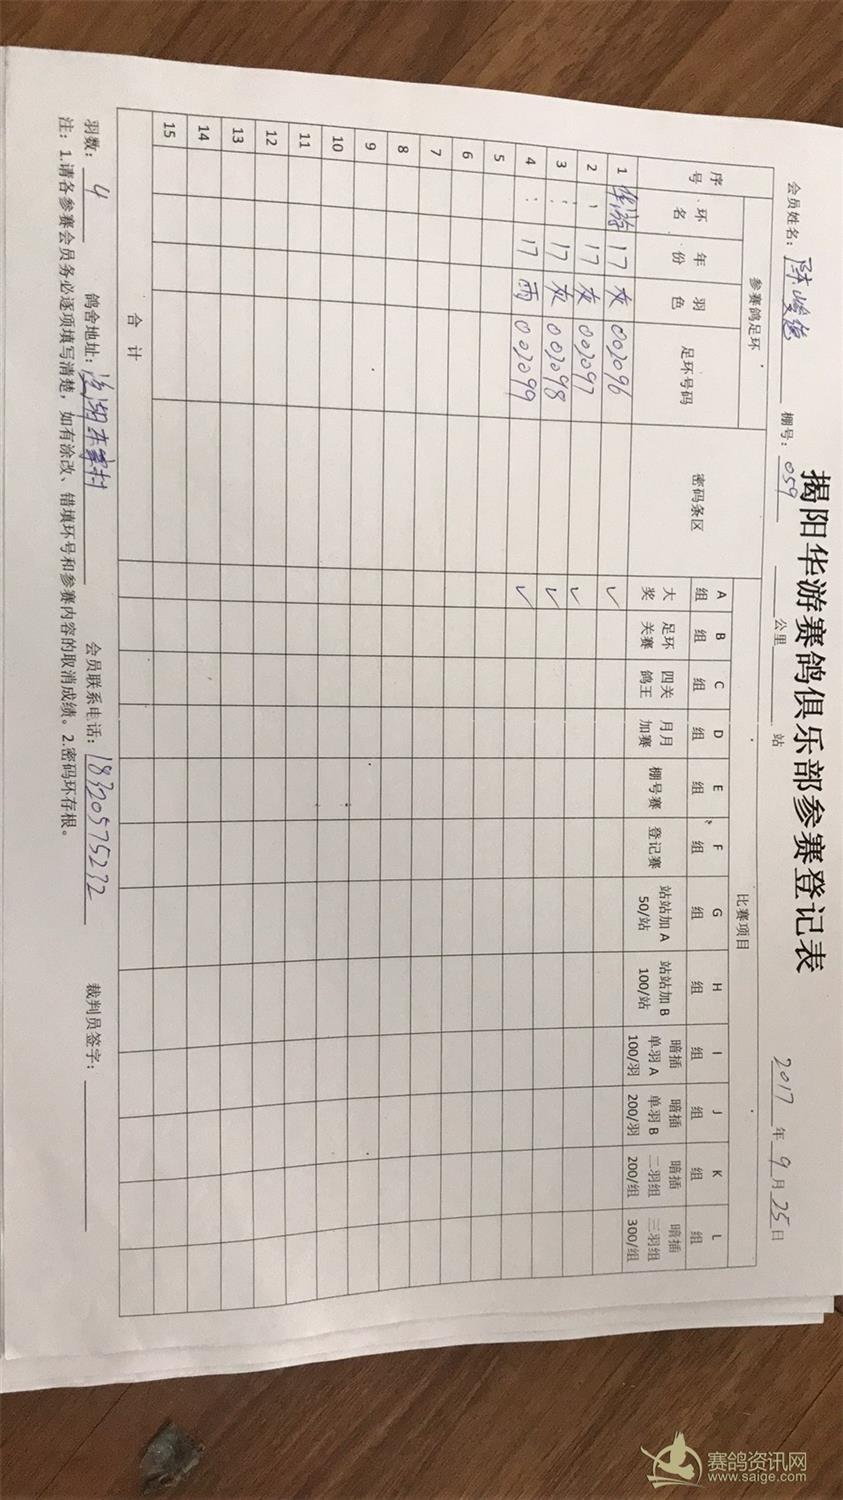 揭阳华游赛鸽俱乐部参赛登记表
会员姓名： 棚号：059 公里 站 2017年9月25日
序号 参赛鸽足环 密码条区 比赛项目
环名 年份 羽色 足环号码 A组 B组 C组 D组 E组 F组 G组 H组 I组 J组 K组 L组
大奖 足环关赛 四关鸽王 月月加赛 棚号赛 登记赛 站站加A 50/站 站站加B 100/站 暗插单羽A 100/羽 暗插单羽B 200/羽 暗插二羽组 200/组 暗插三羽组 300/组
1 华游 17 灰 002096 ✓
2 17 灰 002097 ✓
3 17 灰 002098 ✓
4 17 雨 002099 ✓
5
6
7
8
9
10
11
12
13
14
15
合计
羽数：4 鸽舍地址： 会员联系电话：18320575272 裁判员签字：
注：1.请各参赛会员务必逐项填写清楚，如有涂改、错填环号和参赛内容的取消成绩。2.密码环存根。
赛鸽资讯网
www.saige.com